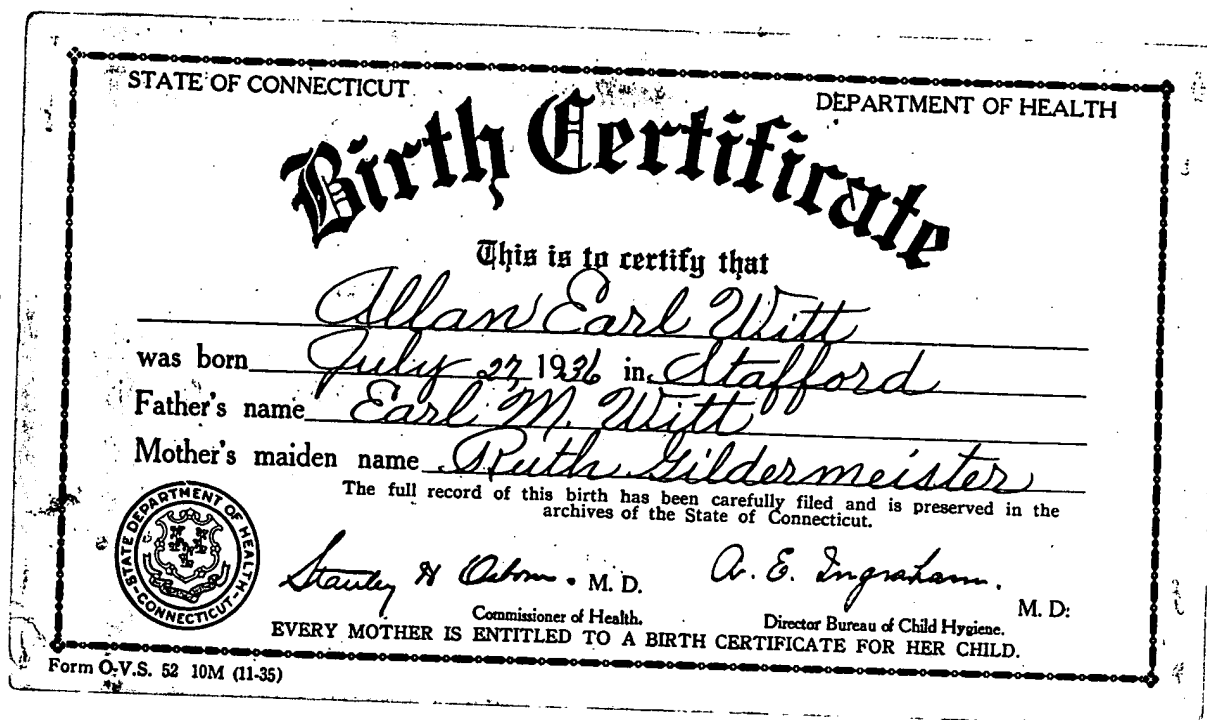 STATE OF CONNECTICUT
DEPARTMENT OF HEALTH
Birth Certificate
This is to certify that
Allan Earl Witt
was born July 27, 1936 in Stafford
Father's name Earl M. Witt
Mother's maiden name Ruth Gildermeister
The full record of this birth has been carefully filed and is preserved in the
archives of the State of Connecticut.
STATE DEPARTMENT OF HEALTH
CONNECTICUT
Stanley H Osborn. M. D.
Commissioner of Health.
A. E. Ingraham. M. D.
Director Bureau of Child Hygiene.
EVERY MOTHER IS ENTITLED TO A BIRTH CERTIFICATE FOR HER CHILD.
Form O.V.S. 52 10M (11-35)